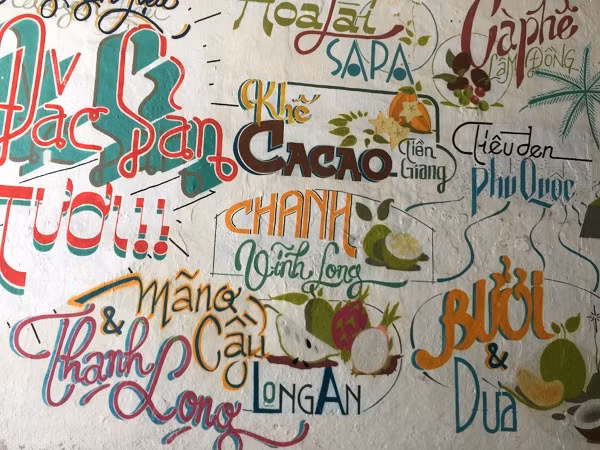 Đặc Sản
TƯƠI!!
Hoa Lài
SAPA
Càphê
LÂM ĐỒNG
Khế
CACAO
Tiền
Giang
Tiêu đen
Phú Quốc
CHANH
Vĩnh Long
Mãng
Cầu
&
Thanh
Long
LONGAN
BƯỞI
&
Dua